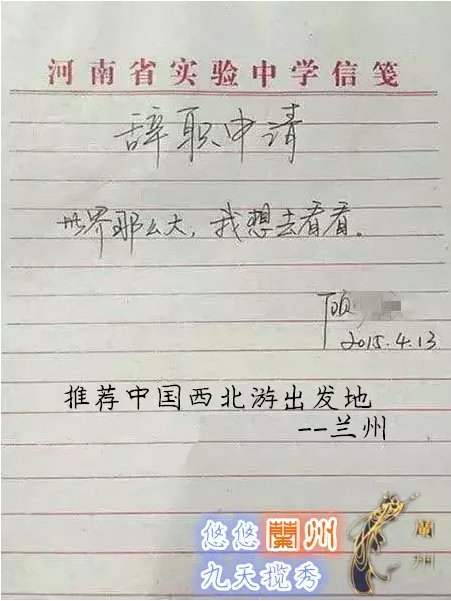 河南省实验中学信笺
辞职申请
世界那么大，我想去看看。
顾
2015.4.13
推荐中国西北游出发地
--兰州
悠悠蘭州
九天揽秀
蘭州